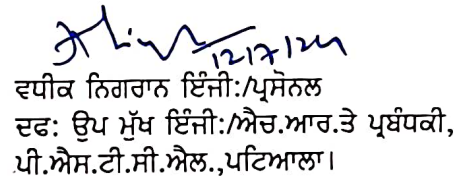 12/7/24
ਵਧੀਕ ਨਿਗਰਾਨ ਇੰਜੀ:/ਪ੍ਰਸੋਨਲ
ਦਫ: ਉਪ ਮੁੱਖ ਇੰਜੀ:/ਐਚ.ਆਰ.ਤੇ ਪ੍ਰਬੰਧਕੀ,
ਪੀ.ਐਸ.ਟੀ.ਸੀ.ਐਲ.,ਪਟਿਆਲਾ।